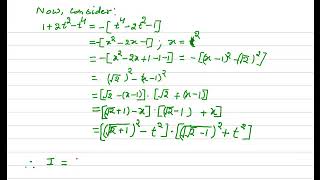 Now, consider:
1+2t²-t⁴ = -[t⁴-2t²-1]
= -[x²-2x-1] ; x = t²
= -[x²-2x+1-1-1] = -[(x-1)²-(√2)²]
= (√2)²-(x-1)²
= [√2-(x-1)]·[√2+(x-1)]
= [(√2+1)-x]·[(√2-1)+x]
= [(√(√2+1))²-t²]·[(√(√2-1))²+t²]
∴ I =